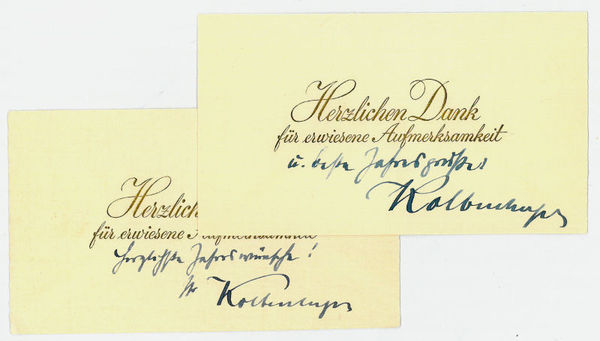 Herzlichen Dank
für erwiesene Aufmerksamkeit
u. beste Jahresgrüße
Kolbenheyer
Herzlich
für erwiesene Aufmerksamkeit
herzlichste Jahreswünsche!
Ihr Kolbenheyer